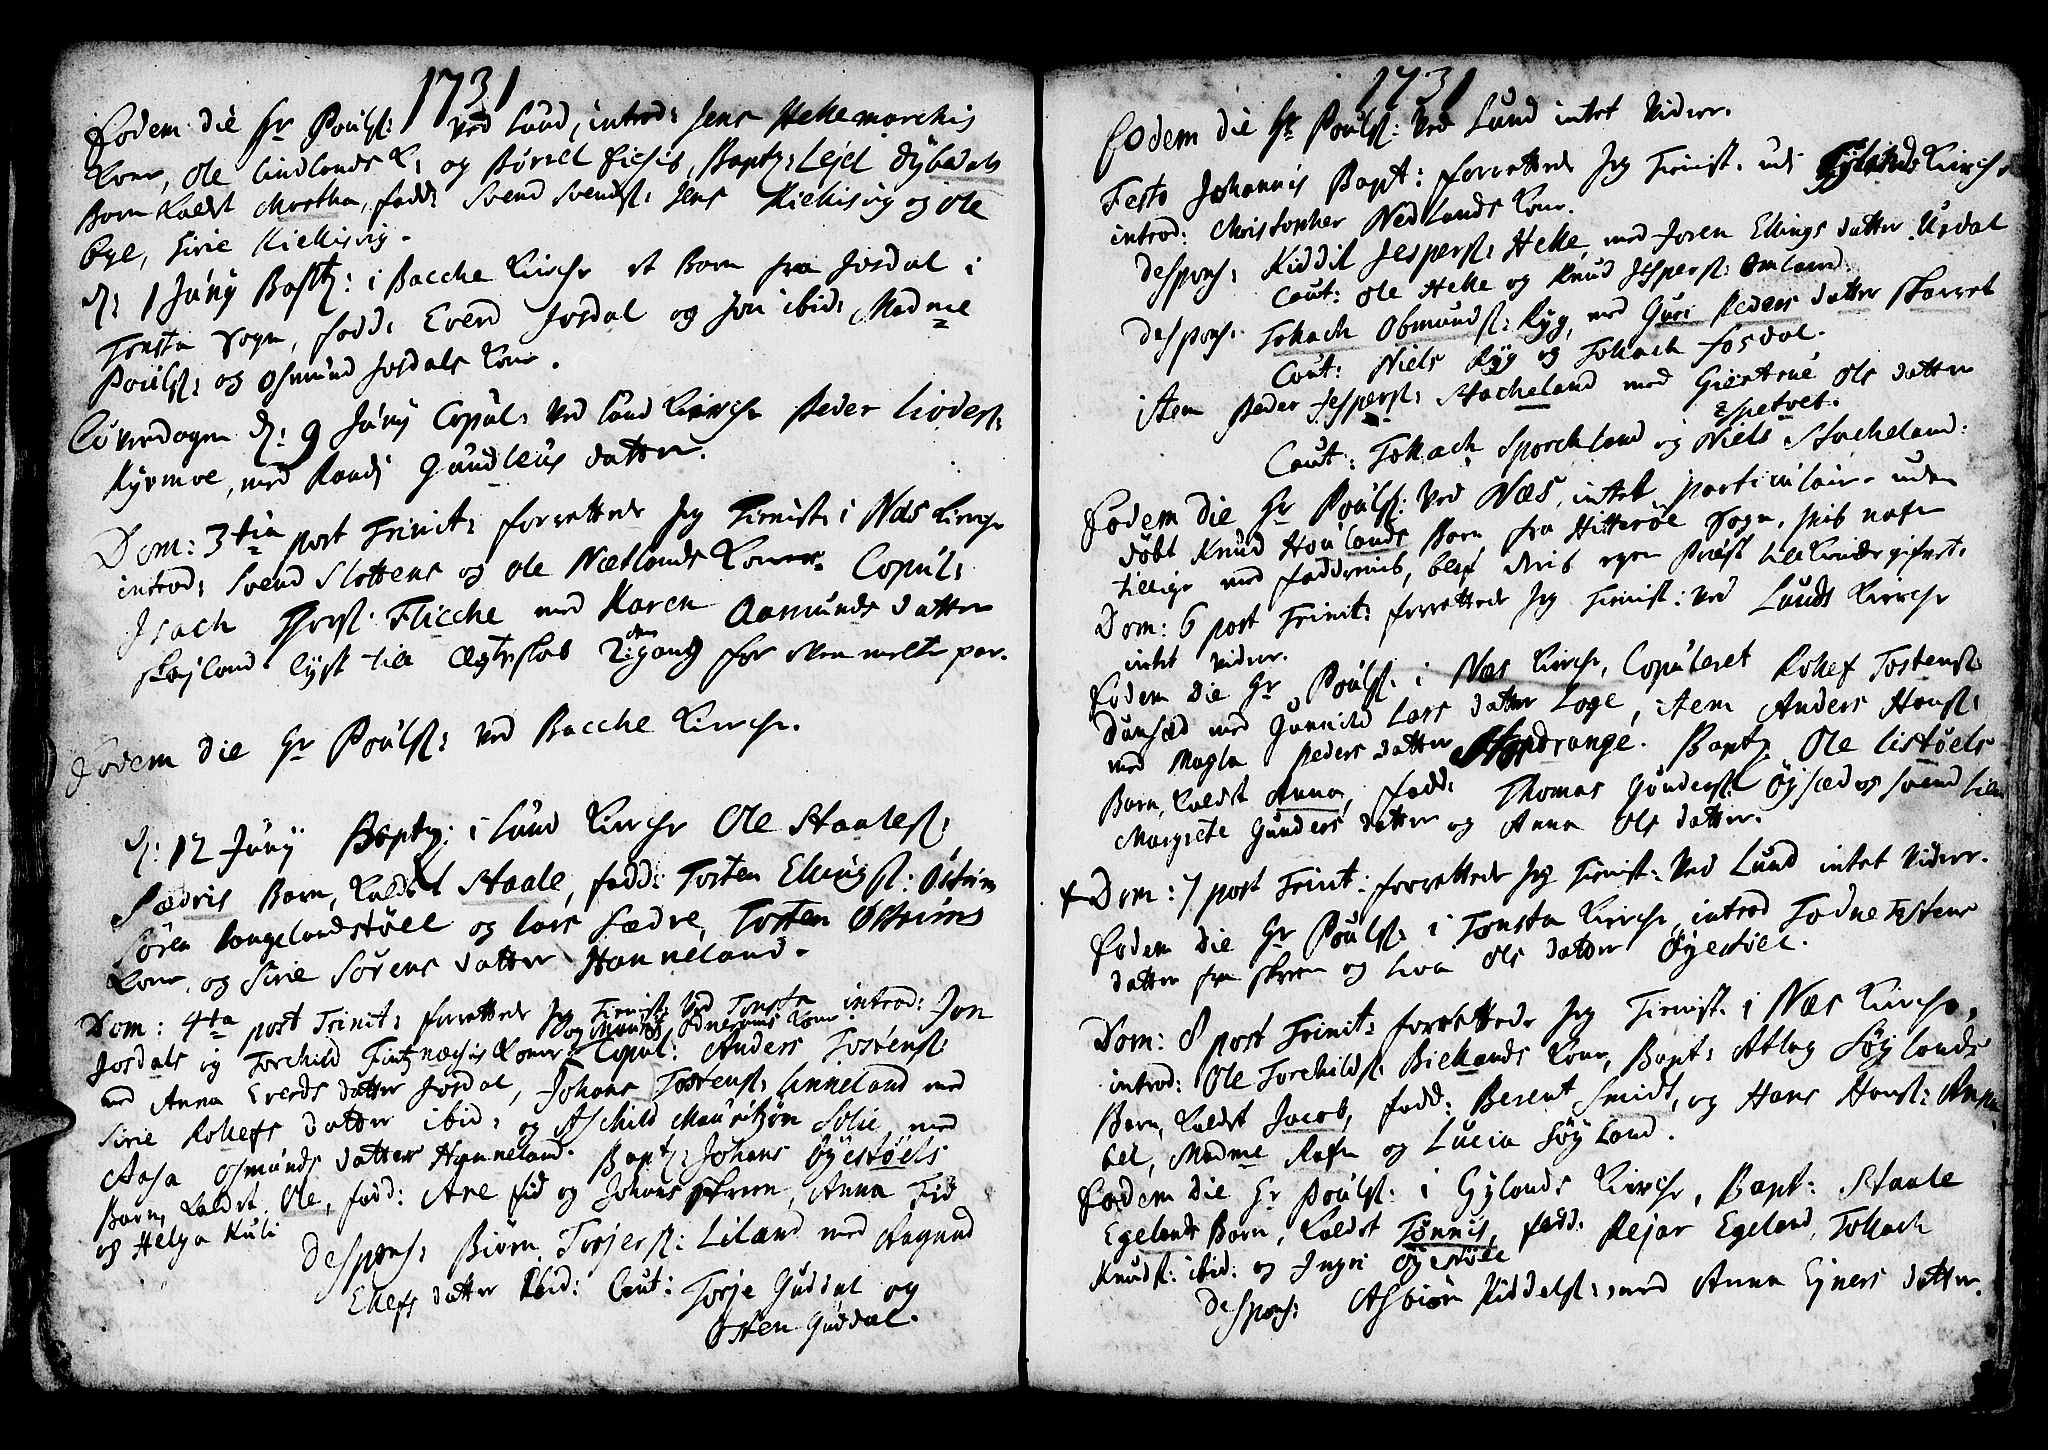 1731
Eodem die Hr Poulß: Ved Lund, introd: Jens Hellemarchis
Kone, Ole Lindlands K: og Børrel Eiesis, Baptz: Lejel Dybedals
Barn Kaldt Martha, fadd: Svend Svendß: Jens Kiellisvig og Ole
Eye, Sirie Kiellisvig.
d: 1 Juny Baptz: i Bacche Kirche et Barn fra Josdal i
Tonsta Sogn, fadd: Everd Josdal og Jon ibid: Madme
Poulß: og Osmund Josdals Kone.
Løverdagen d: 9 Juny Copul: Ved Lund Kirche Peder Liodersß:
Kyrmoe, med Randj Gundleus datter.
Dom: 3tia post Trinit: forrettede Jeg Tienist: i Næs Kirche
introd: Svend Slottens og Ole Netlands Koner. Copul:
Isach Flicche med Karen Aamunds datter
Skojland lyst till Ægteskab 2den gang for Even melte par.
Eodem die Hr Poulß: Ved Bacche Kirche.
d: 12 Juny Baptz: i Lund Kirche Ole Staaleß:
Sædris Barn, Kaldet Staale, fadd: Tosten Ellingß: Østeim
Søren Langelandstøell og Lars Sædre, Tosten Østeims
Kone, og Sirie Sørens datter Hanneland.
Dom: 4ta post Trinit: forrettede Jeg Tienist: Ved Tonsta introd: Jon
Josdals og Torchild Fintznæsis Koner Copul: Anders Tostensß:
med Anna Everds datter Josdal, Johans Tostensß: Linneland med
Sirie Rollefs datter ibid: og Aschild Mauritzøn Solie med
Aasa Osmunds datter Hanneland. Baptz: Johans Øyestøels
Barn, Kaldet Ole, fadd: Are Fid og Johans Skreen, Anna Fid
og Helga Kuli
Despons: Biørn Terjersß: Liland med Aagund
Ellefs datter ibid: Caut: Torje Guddal og
Sten Guddal.
1731
Eodem die Hr Poulß: Ved Lund intet Vidre.
Festo Johannis Bapt: forrettede Jeg Tienist. udi Gylands Kirche
introd: Christopher Nedlands Kone.
Despons: Kiddil Jespersß: Helle, med Joren Ellings datter Urdal
Caut: Ole Helle og Knud Jespersß: Omland.
Despons. Tollach Obmundsß: Ryg, med Guri Peders datter Skarret
Caut: Niels Ryg og Tollach Josdal.
item Peder Jespersß: Stacheland med Giertrue Ols datter
Espetvet.
Caut: Tollach Sporchland og Niels Stacheland.
Eodem die Hr Poulß: Ved Næs, intet particulair uden
døbt Knud Houlands Barn fra Hitterøe Sogn, hvis nafn
tillige med faddrenis, blef dens egen Præst tilkiendegifvet.
Dom: 6 post Trinit: forrettede Jeg Tienist: Ved Lunds Kirche
intet vidre.
Eodem die Hr Poulß: i Næs Kirche, Copuleret Rollef Tostensß:
Dunsæd med Gunnild Lars datter Loge, item Anders Hansß:
med Magla Peders datter Stordrange. Baptz. Ole Listøels
Barn, Kaldet Anna, fadd: Thomas Gundersß Øysæd og Svend Lien
Margrete Gunders datter og Anna Ols datter.
+ Dom: 7 post Trinit: forrettede Jeg Tienist: Ved Lund intet Vidre.
Eodem die Hr Poulß: i Tonsta Kirche, introd Todne Tostens
datter fra Skreen og Liva Ols datter Øyestøel.
Dom: 8 post Trinit: forrettede Jeg Tienist. i Næs Kirche,
introd: Ole Torchildsß: Biellands Kone, Bapt: Atlag Søylands
Barn, Kaldet Jacob, fadd: Berent Smidt, og Hans Hansß:
bel, Madme Rafn og Lucia Søyland.
Eodem die Hr Poulß: i Gylands Kirche, Bapt: Staale
Egelands Barn, Kaldet Tønnis, fadd: Rejar Egeland, Tollach
Knudß: ibid: og Ingri Øyestøell
Despons: Asbiørn Kiddelsß: med Anna Ejners datter.